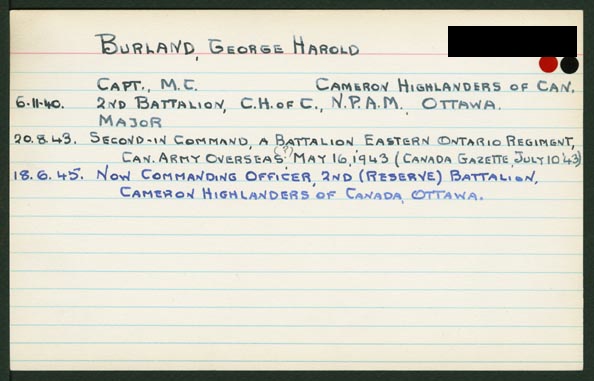 BURLAND, GEORGE HAROLD
CAPT., M.C. CAMERON HIGHLANDERS OF CAN.
6.11.40. 2ND BATTALION, C.H. OF C., N.P.A.M. OTTAWA.
MAJOR
20.8.43. SECOND-IN COMMAND, A BATTALION EASTERN ONTARIO REGIMENT,
CAN. ARMY OVERSEAS (?) MAY 16, 1943 (CANADA GAZETTE, JULY 10 '43)
18.6.45. NOW COMMANDING OFFICER, 2ND (RESERVE) BATTALION,
CAMERON HIGHLANDERS OF CANADA, OTTAWA.